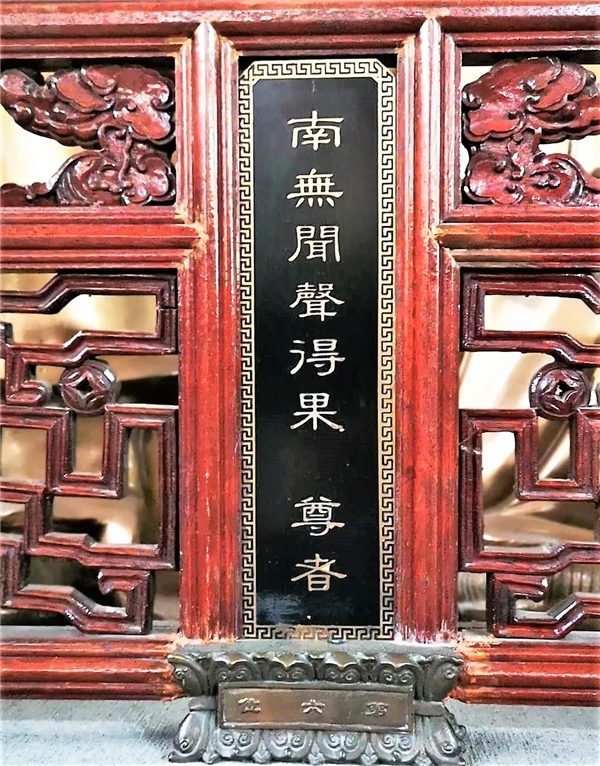 南無聞聲得果 尊者
第六位